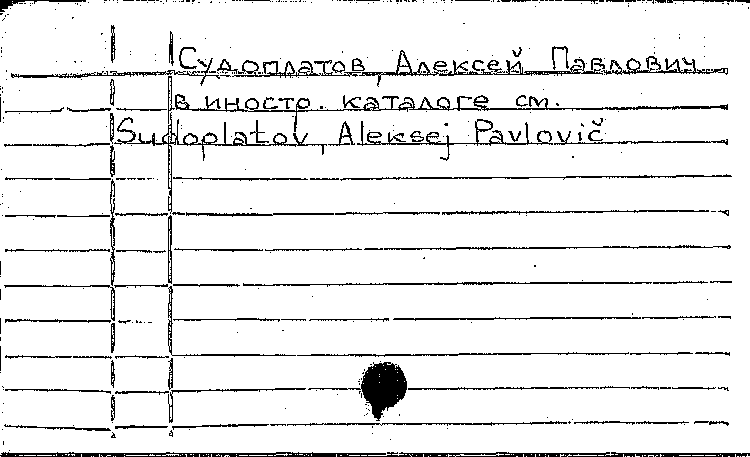 Судоплатов, Алексей Павлович
в иностр. каталоге см.
Sudoplatov, Aleksej Pavlovič